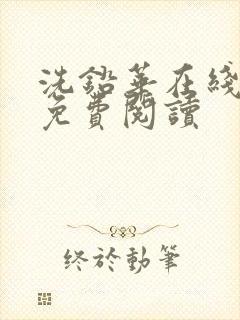 洗鉛華在綫
免費閱讀
终於動筆